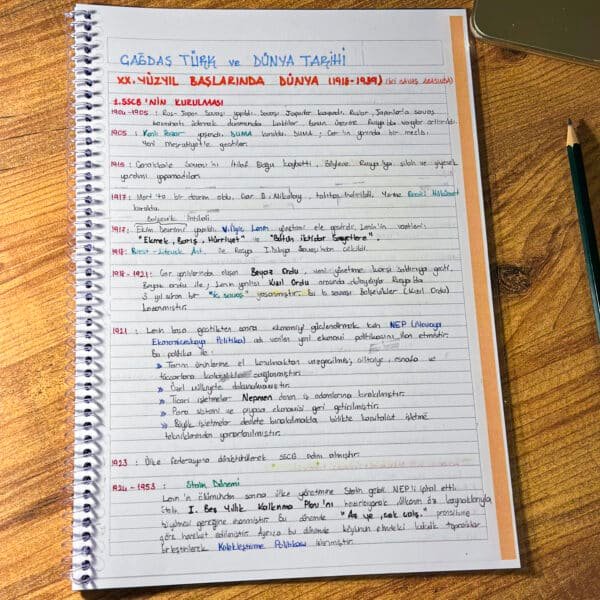 ÇAĞDAŞ TÜRK ve DÜNYA TARİHİ
XX. YÜZYIL BAŞLARINDA DÜNYA (1918-1939) (İKİ SAVAŞ ARASINDA)
1. SSCB'NİN KURULMASI
1904-1905 : Rus-Japon Savaşı yapıldı. Savaşı Japonlar kazandı. Ruslar, Japonlarla savaş
durumunda kaldılar. Bunun üzerine Rusya'da vergiler arttırıldı.
1905 : Kanlı Pazar yaşandı. DUMA kuruldu. DUMA ; Çar'ın yanında bir meclis.
Yeni Meşrutiyete geçtiler.
1915 : Çanakkale Savaşı'nı İtilaf Bloğu kaybetti. Böylece Rusya'ya silah ve yiyecek
yardımı yapamadılar.
1917 : Mart'ta bir devrim oldu. Çar II. Nikolay, tahttan indirildi. Yerine Geçici Hükümet
kuruldu.
Bolşevik İhtilali
1917 : Ekim Devrimi yapıldı. Vilayic Lenin yönetimi ele geçirdi. Lenin'in vaatleri:
"Ekmek, Barış, Hürriyet" ve "Bütün iktidar Sovyetlere".
1918 : Brest-Litowsk Ant. ile Rusya I. Dünya Savaşı'ndan çekildi.
1918-1921 : Çar yanlılarından oluşan Beyaz Ordu, yeni yönetime karşı saldırıya geçti.
Beyaz ordu ile ; Lenin yanlısı Kızıl Ordu arasında dolayısıyla Rusya'da
3 yıl süren bir "iç savaş" yaşanmıştır. Bu iç savaşı Bolşevikler (Kızıl Ordu)
kazanmıştır.
1921 : Lenin başa geçtikten sonra ekonomiyi güçlendirmek için NEP (Novaya
Ekonomiceskaya Politika) adı verilen yeni ekonomi politikasını ilan etmiştir.
Bu politika ile :
» Tarım ürünlerine el konulmaktan vazgeçilmiş, çiftçiye, esnafa ve
tüccarlara kolaylıklar sağlanmıştır.
» Özel mülkiyete dokunulmamıştır.
» Ticari işletmeler Nepmen denen iş adamlarına bırakılmıştır.
» Para sistemi ve piyasa ekonomisi geri getirilmiştir.
» Büyük işletmeler devlete bırakılmakla birlikte kapitalist işletme
tekniklerinden yararlanılmıştır.
1923 : Ülke federasyona dönüştürülerek SSCB adını almıştır.
1924-1953 : Stalin Dönemi
Lenin'in ölümünden sonra ülke yönetimine Stalin geldi. NEP'i iptal etti.
Stalin I. Beş Yıllık Kalkınma Planı'nı hazırlayarak, ülkenin öz kaynaklarıyla
büyümesi gereğine inanmıştır. Bu dönemde "Az ye, çok çalış." prensibine
göre hareket edilmiştir. Ayrıca bu dönemde köylünün elindeki topraklar
birleştirilerek Kolektifleştirme Politikası izlenmiştir.